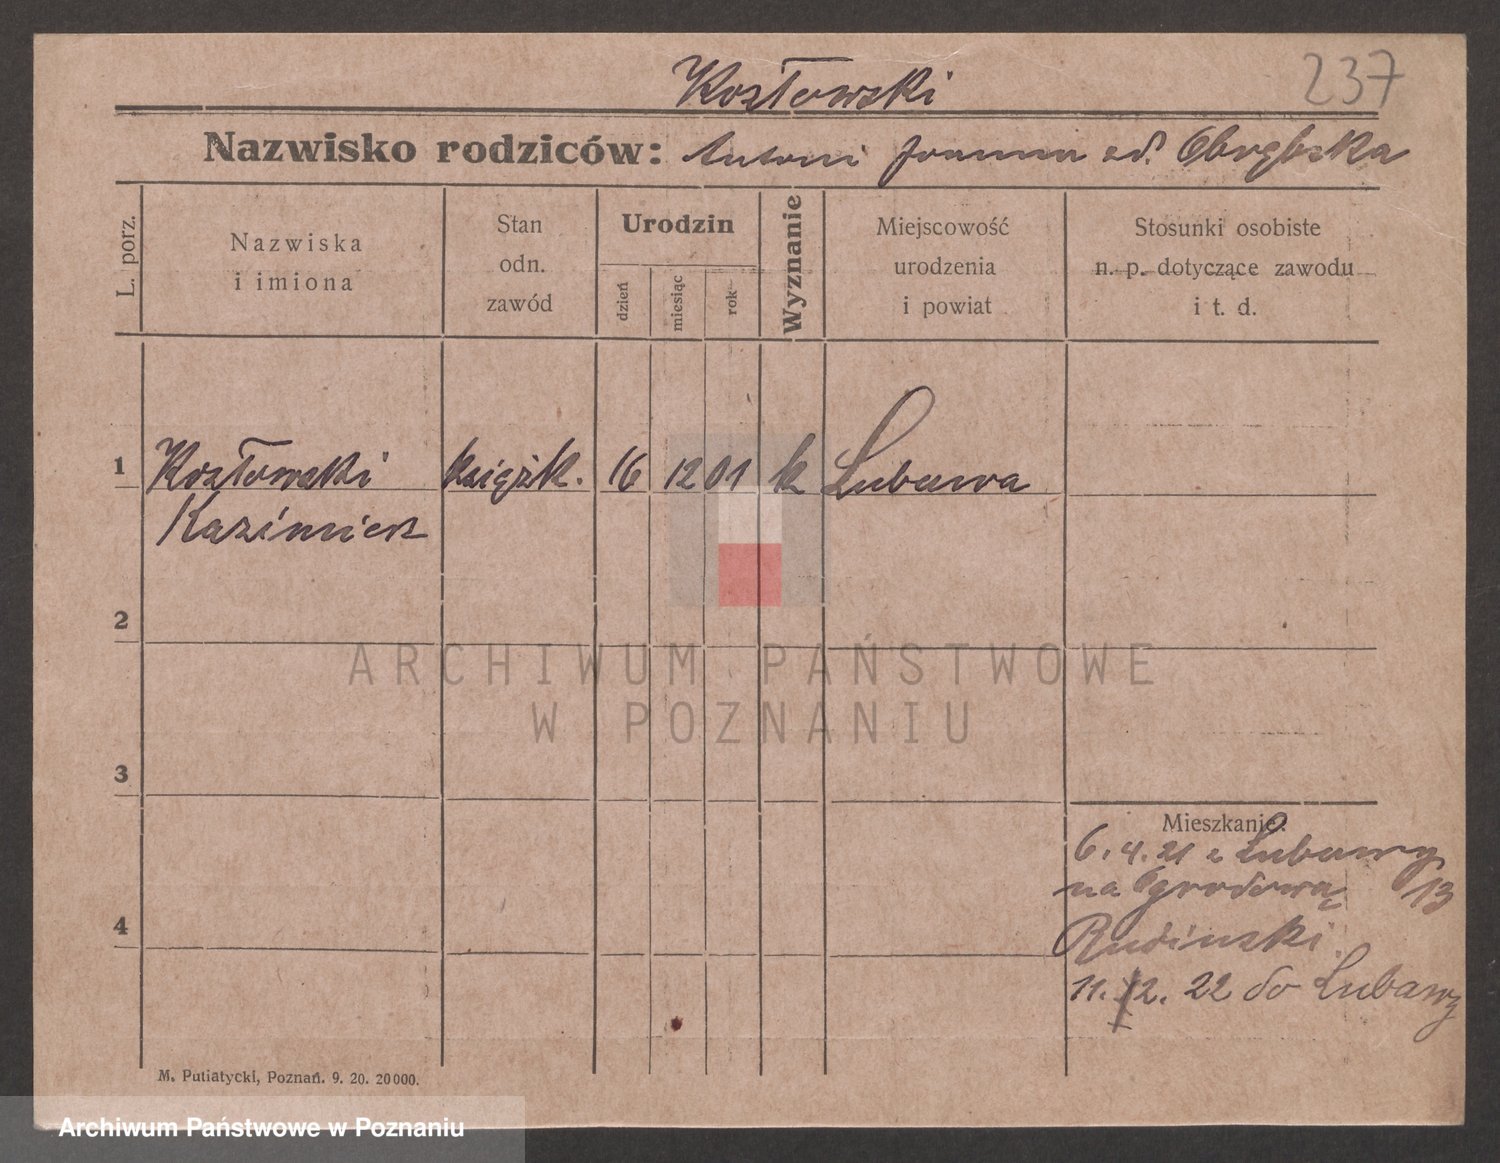 Kozłowski
237
Nazwisko rodziców: Antoni Joanna zd. Obrębska
L. porz.
Nazwiska
i imiona
Stan
odn.
zawód
Urodzin
dzień
miesiąc
rok
Wyznanie
Miejscowość
urodzenia
i powiat
Stosunki osobiste
n. p. dotyczące zawodu
i t. d.
1 Kozłowski książk. 16 12 01 k Lubawa
Kazimierz
2
ARCHIWUM PAŃSTWOWE
W POZNANIU
3
Mieszkanie:
6. 4. 21 z Lubawy
na Grodową 13
4
Rudinski
11. 2. 22 do Lubawy
M. Putiatycki, Poznań. 9. 20. 20000.
Archiwum Państwowe w Poznaniu